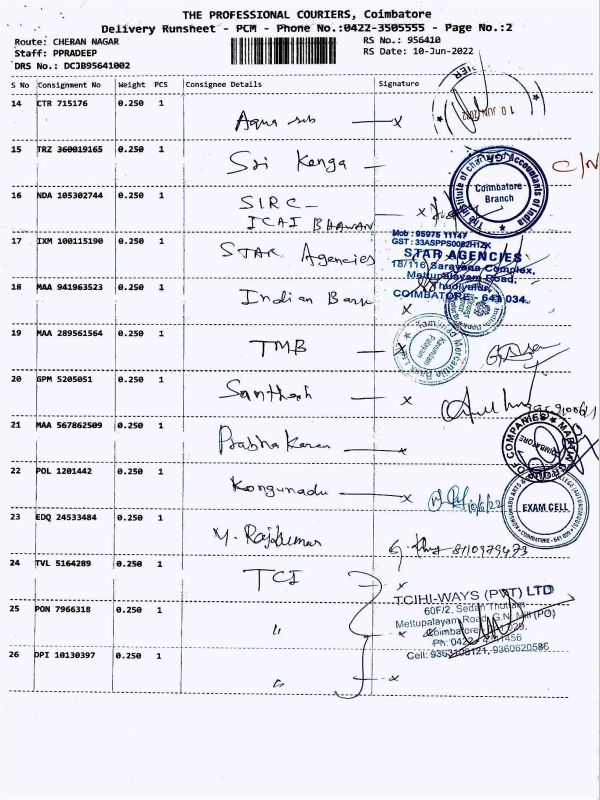 THE PROFESSIONAL COURIERS, Coimbatore
Delivery Runsheet - PCM - Phone No.:0422-3505555 - Page No.:2
Route: CHERAN NAGAR
RS No.: 956410
Staff: PPRADEEP
RS Date: 10-Jun-2022
DRS No.: DCJB95641002
S No Consignment No Weight PCS Consignee Details Signature
14 CTR 715176 0.250 1
Aqua sub x
10 JUN 2022
15 TRZ 360019165 0.250 1
Sri Kenga
C/N
The Institute of Chartered Accountants of India
Coimbatore Branch
16 NDA 105302744 0.250 1
SIRC -
ICAI BHAWAN x
17 IXM 100115190 0.250 1
STAR Agencies
Mob : 95975 11147
GST : 33ASPPS0082H1ZX
STAR AGENCIES
18/116 Saravana Complex,
Mettupalayam Road,
Thudiyalur,
COIMBATORE - 641 034.
18 MAA 941963523 0.250 1
Indian Bank x
19 MAA 289561564 0.250 1
TMB x
Tamilnad Mercantile Bank Ltd
20 GPM 5205051 0.250 1
Santhosh x
21 MAA 567862509 0.250 1
Prabhakaran x
OF COMPANIES
COIMBATORE
22 POL 1201442 0.250 1
Kongunadu x
10/6/22
EXAM CELL
COIMBATORE - 641 029
23 EDQ 24533484 0.250 1
M. Rajkumar
8110979473
24 TVL 5164289 0.250 1
TCI x
TCIHI-WAYS (PVT) LTD
60F/2, Sedan Thottam,
Mettupalayam Road, G.N. Mill (PO)
Coimbatore
Cell: 9363108121, 9360620586
25 PON 7966318 0.250 1
" x
26 DPI 10130397 0.250 1
" x